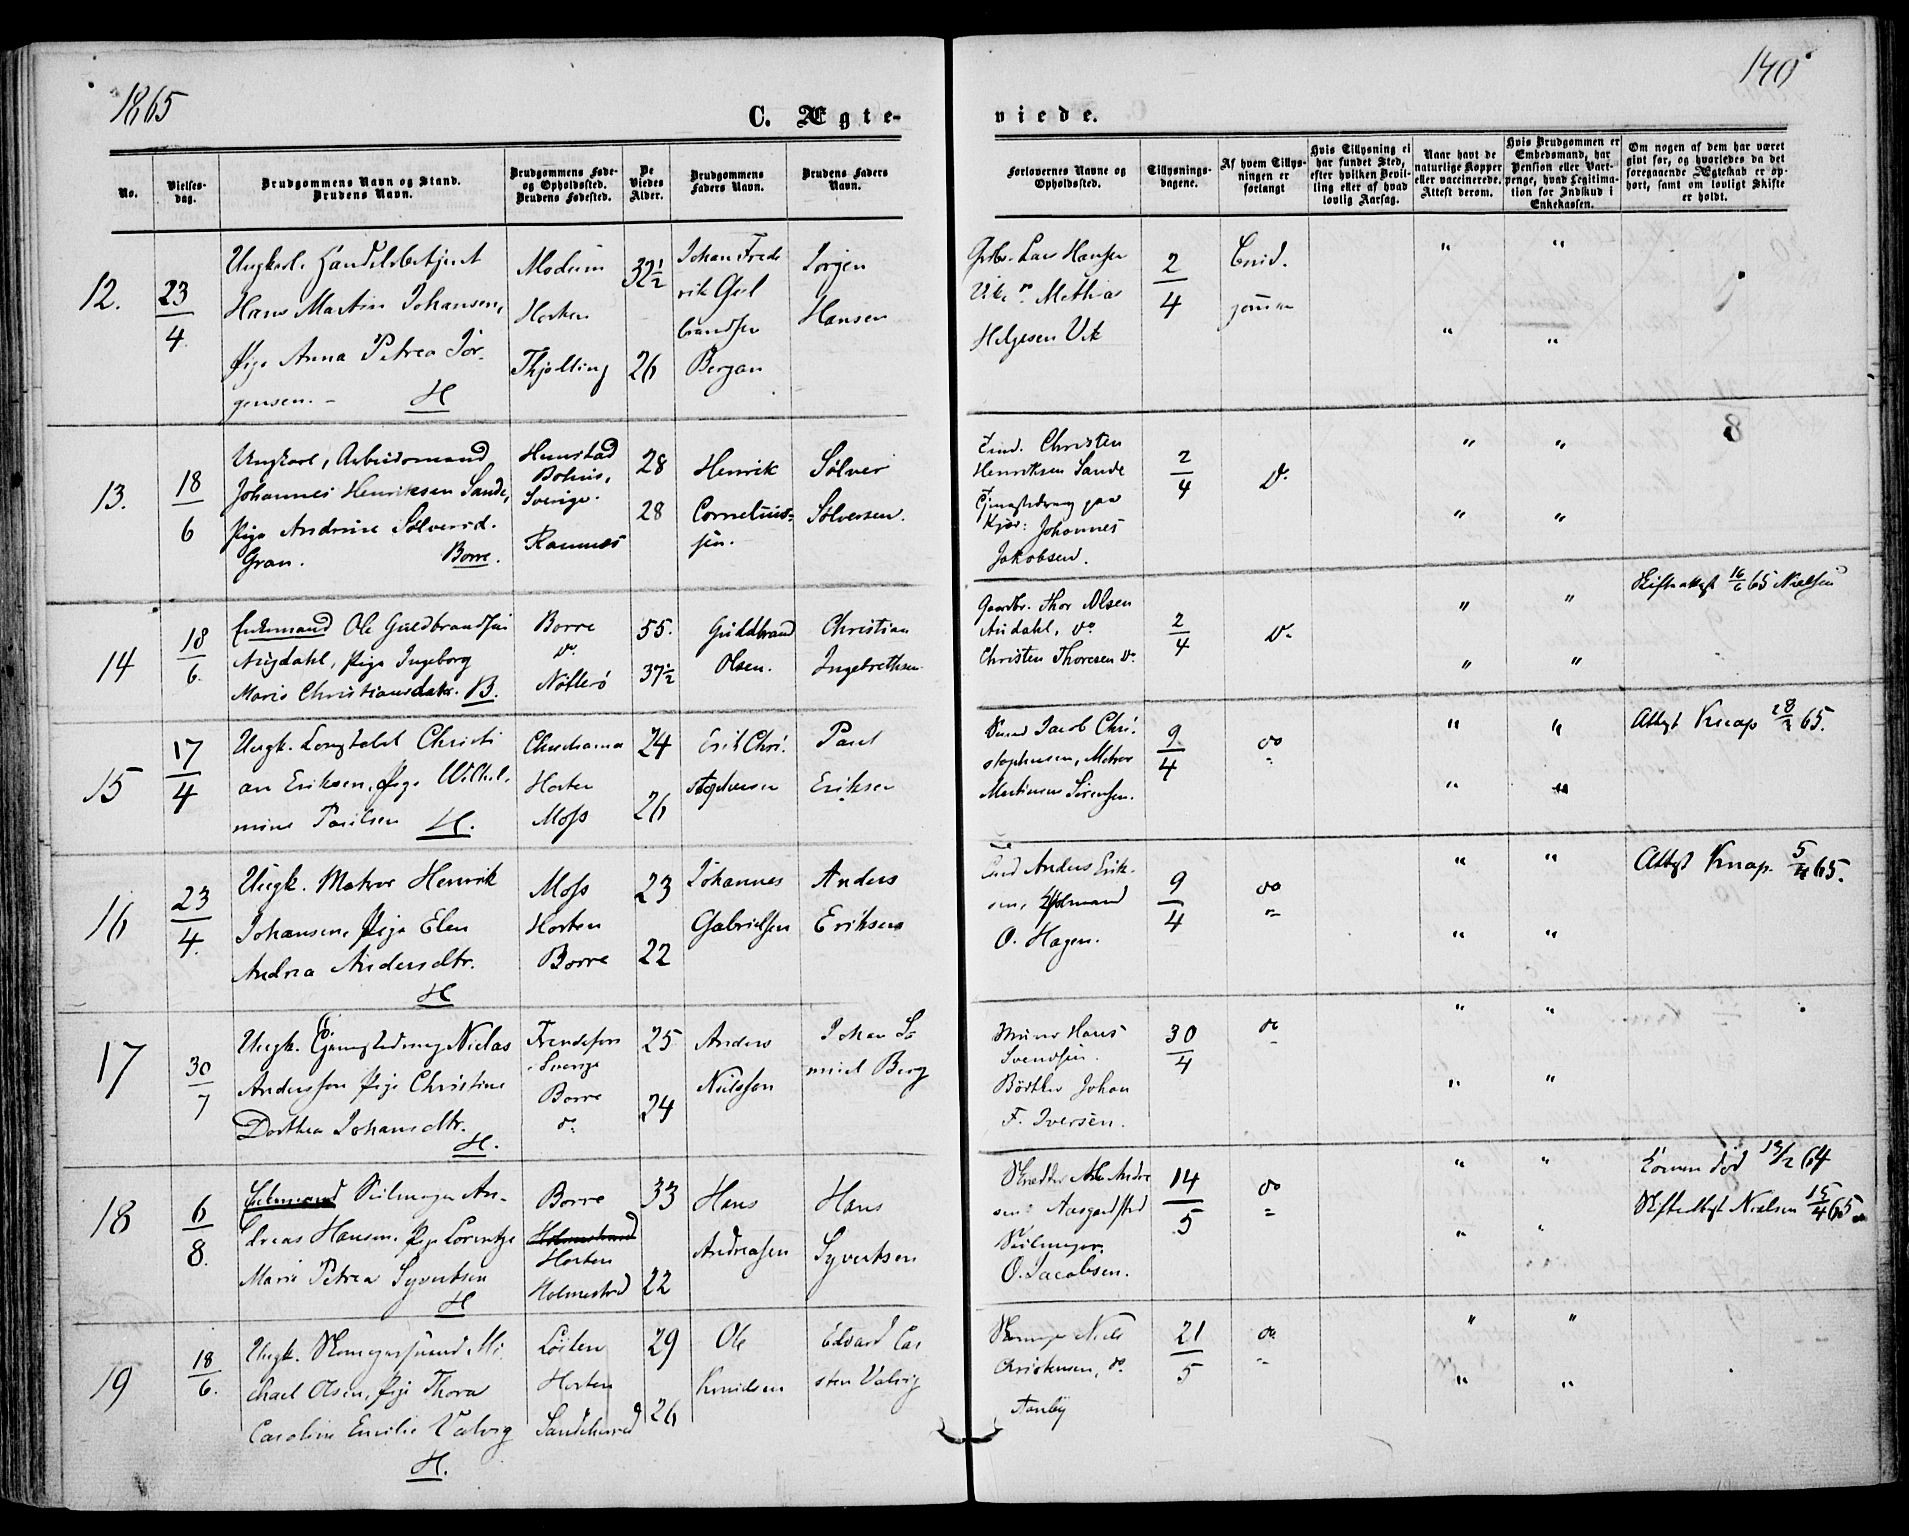 1865
140
C. Ægte-
viede.
No.
Vielses-
dag.
Brudgommens Navn og Stand.
Brudens Navn.
Brudgommens Føde-
og Opholdssted.
Brudens Fødested.
De
Viedes
Alder.
Brudgommens
Faders Navn.
Brudens Faders
Navn.
Forlovernes Navne og
Opholdssted.
Tillysnings-
dagene.
Af hvem Tillys-
ningen er
forlangt
Hvis Tillysning ei
har fundet Sted,
efter hvilken Bevil-
ling eller af hvad
lovlig Aarsag.
Naar havt de
naturlige Kopper
eller vaccinerede.
Attest derom.
Hvis Brudgommen er
Embedsmand, har
Pension eller Vart-
penge, hvad Legitima-
tion for Indskud i
Enkekassen.
Om nogen af dem har været
gift før, og hvorledes da det
foregaaende Ægteskab er op-
hørt, samt om lovligt Skifte
er holdt.
12.
23/4
Ungkarl. Handelsbetjent
Hans Martin Johansen,
Pige Anna Petrea Jør-
gensen. - H
Modum
Horten
Thjølling
32½
26
Johan Frede
rik Gul
brandsen
Bergan
Jørgen
Hansen
Grbr. Lars Hansen
Vik Mathias
Helgesen Vik
2/4
Brud-
gommen
" "
" "
13.
18/6
Ungkarl, Arbeidsmand
Johannes Henriksen Sande,
Pige Andrine Sølversd.
Gran. Borre.
Hunstad
Bohus,
Sverige.
Ramnes
28
28
Henrik
Cornelius-
sen.
Sølver
Sølversen.
Christen
Henriksen Sande
Johannes
Jakobsen.
2/4
Do
" "
" "
14
18/6.
Enkemand Ole Guldbrandsen
Augdahl, Pige Ingeborg
Marie Christiansdatr. B.
Borre
do
Nøtterø
55.
37½
Guldbrand
Olsen.
Christian
Ingebrethsen
Gaardbr. Thor Olsen
Audahl, do
Christen Thoresen do
2/4
Do
" "
" "
Skifteattest 16/6 65 Nielsen
15
17/4
Ungk. Christi
an Eriksen, Pige Wilhel-
mine Paulsen H.
Christiania
Horten
Moss
24
26
Erik Chri-
stophersen
Paul
Eriksen
Jacob Chri-
stophersen, Matros
Martinius Sørensen.
9/4
do
" "
" "
Attest Knap 28/3 65.
16
23/4.
Ungk. Matros Henrik
Johansen, Pige Elen
Andrea Andersdtr.
H
Moss
Horten
Borre
23
22
Johannes
Gabrielsen
Anders
Eriksen
Anders Erik-
sen,
O. Hagen.
9/4
do
" "
" "
Attest Knap. 5/4 65.
17
30/7
Ungk. Niclas
Andersson Pige Christine
Dorthea Johansdtr.
H.
Sverige
Borre
do
25
24
Anders
Nielsson
Johan Sa
muel Berg
Murer Hans
Svendsen.
Bødtker Johan
F. Iversen.
30/4
do
" "
" "
18
6/8.
Enkemand Seilmager An-
dreas Hansen. Pige Lorentze
Marie Petrea Syvertsen
H
Borre
Holmestrand
Horten
Holmestrd
33
22
Hans
Andreasen
Hans
Syvertsen
Andre
sen Aasgaardstrd
Seilmager
O. Jacobsen.
14/5
do
" "
" "
Konen død 12/2 64
Skifteattest Nielsen 15/4 65
19
18/6.
Ungk. Skomagersvend Mi-
chael Olsen, Pige Thora
Caroline Emilie Valvig
H.
Løiten
Horten
Sandeherred
29
26
Ole
Knudsen
Edvard Car
sten Valvig
Skomager Niels
Christensen, do
Aanby
21/5
do
" "
" "